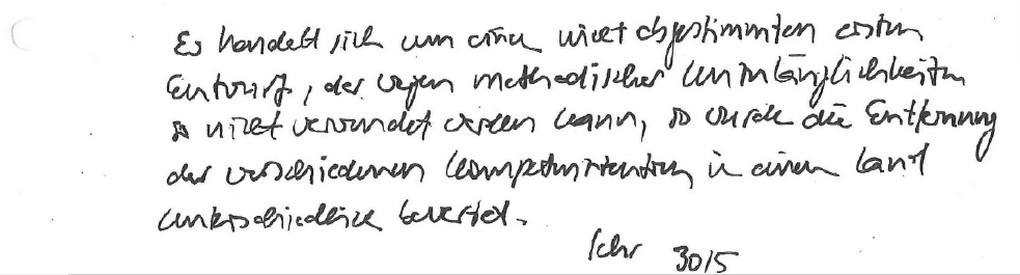 Es handelt sich um einen nicht abgestimmten ersten
Entwurf, der wegen methodischer Unzulänglichkeiten
so nicht verwendet werden kann, so wurde die Entfernung
der verschiedenen Kompetenzzentren in einem Land
unterschiedlich bewertet.
30/5